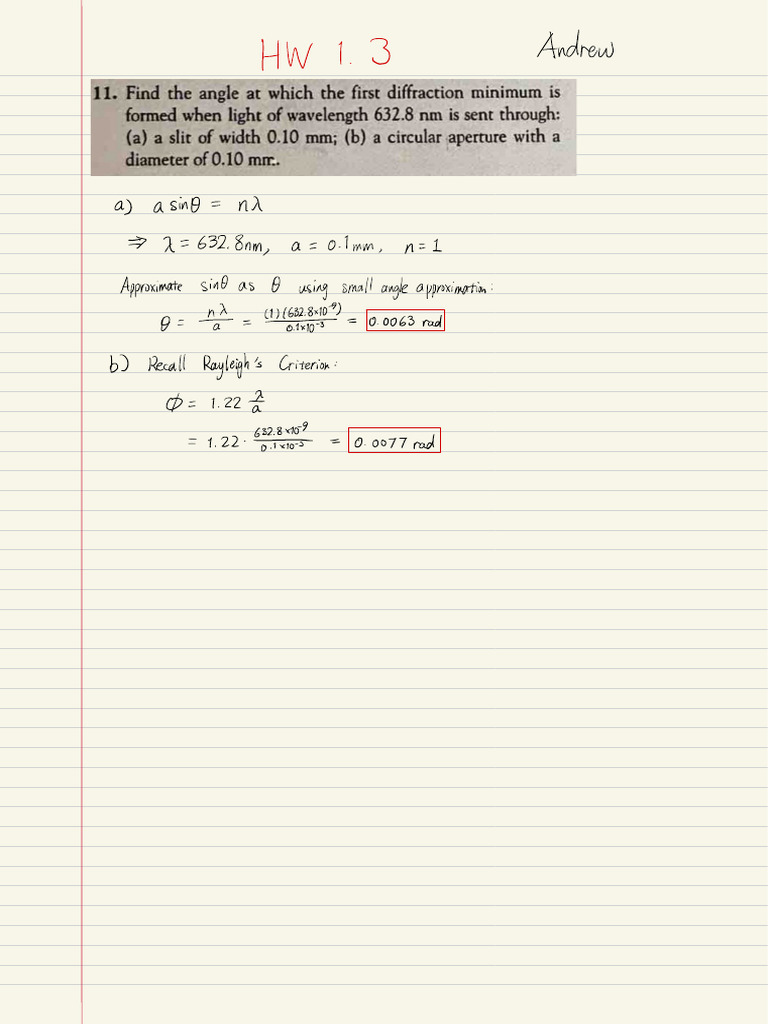 HW 1.3
Andrew
11. Find the angle at which the first diffraction minimum is
formed when light of wavelength 632.8 nm is sent through:
(a) a slit of width 0.10 mm; (b) a circular aperture with a
diameter of 0.10 mm.
a) a sinθ = nλ
⇒ λ = 632.8nm, a = 0.1mm, n = 1
Approximate sinθ as θ using small angle approximation:
θ = nλ/a = (1)(632.8×10⁻⁹)/0.1×10⁻³ = 0.0063 rad
b) Recall Rayleigh's Criterion:
ϕ = 1.22 λ/a
= 1.22 · 632.8×10⁻⁹/0.1×10⁻³ = 0.0077 rad